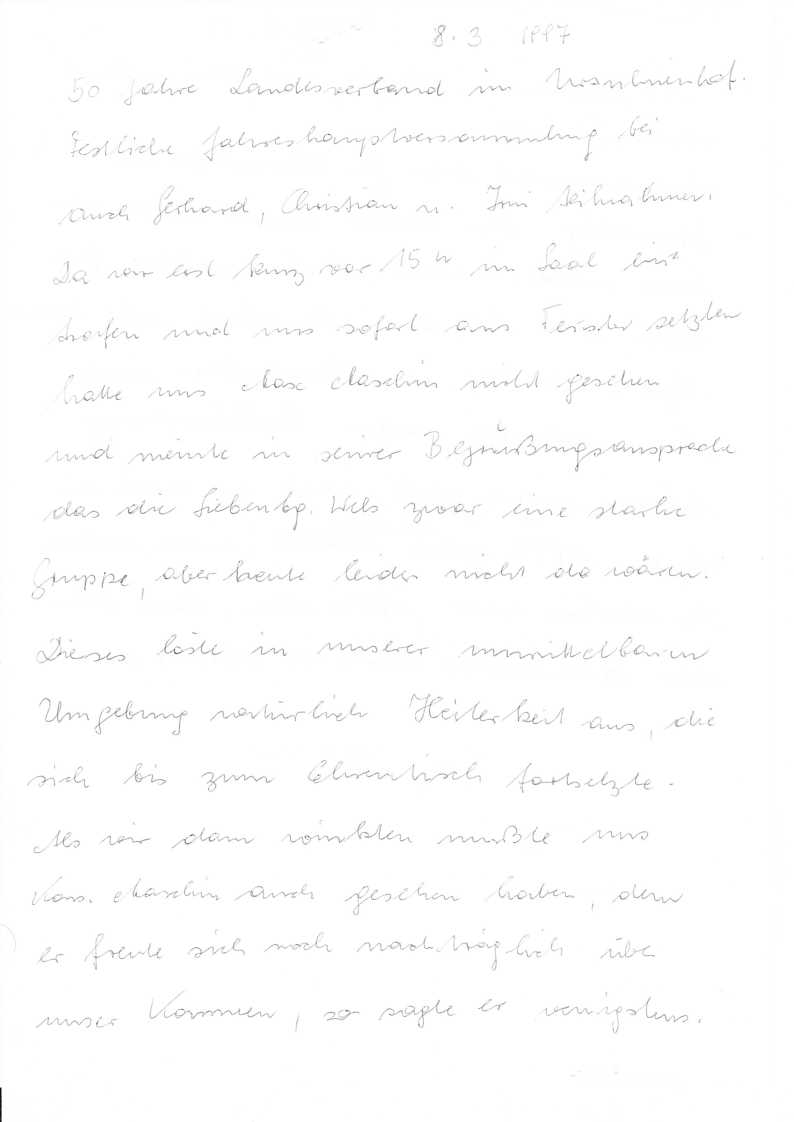 8.3 1997
50 Jahre Landesverband im Ursulinenhof.
Festliche Jahreshauptversammlung bei
auch Gerhard, Christian u. Irmi teilnahmen.
Da wir erst kurz vor 15 h im Saal ein-
trafen und uns sofort ans Fenster setzten
hatte uns Maschin nicht gesehen
und meinte in seiner Begrüßungsansprache
das die Siebenbg. Wels zwar eine starke
Gruppe, aber heute leider nicht da wären.
Dieses löste in unserer unmittelbaren
Umgebung natürlich Heiterkeit aus, die
sich bis zum Ehrentisch fortsetzte.
Als wir dann winkten mußte uns
Kons. Maschin auch gesehen haben, denn
er freute sich noch nachträglich über
unser Kommen, so sagte er wenigstens.